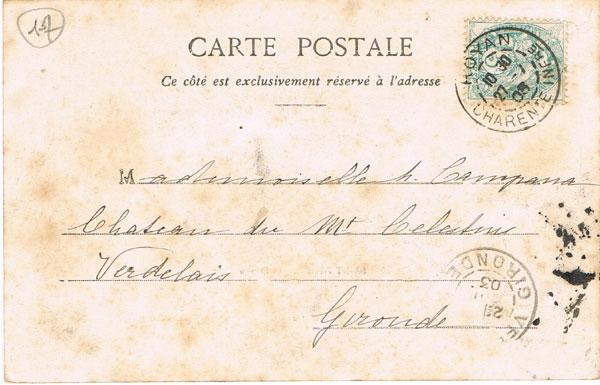 17
CARTE POSTALE
Ce côté est exclusivement réservé à l'adresse
ROYAN
CHARENTE INF
Mademoiselle h. Campana
Chateau du Mt Celestins
Verdelais
Gironde
GIRONDE
21
03